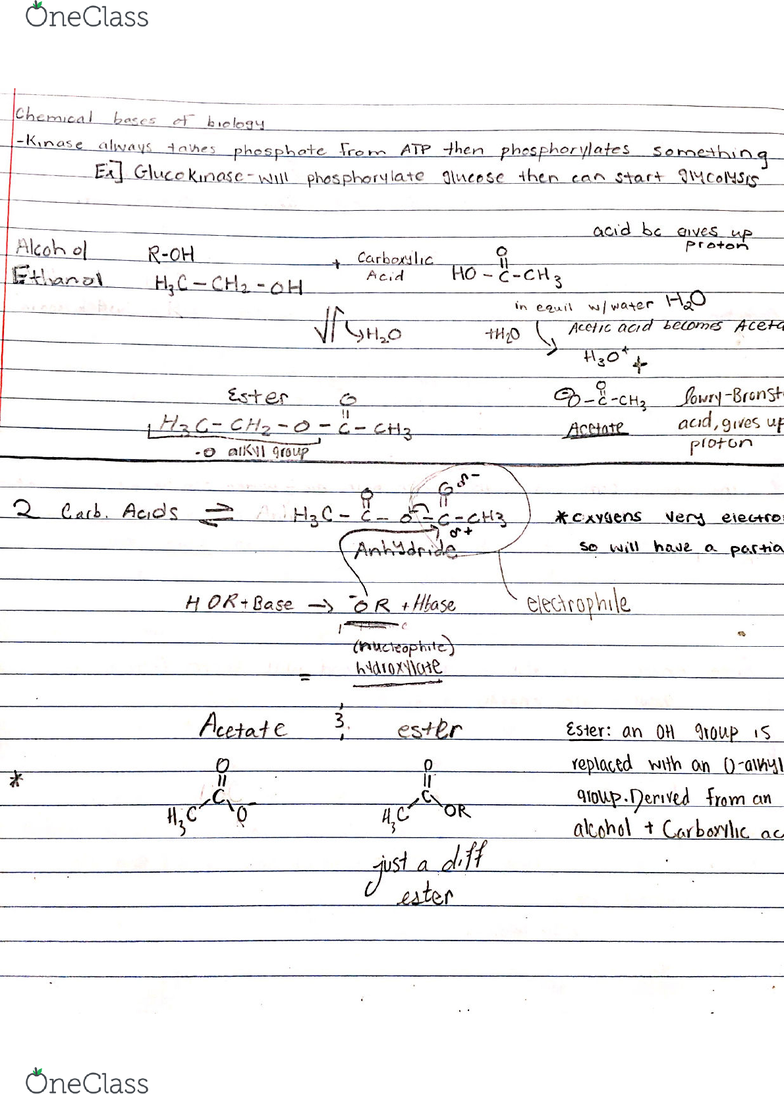 OneClass
Chemical bases of biology
-Kinase always takes phosphate from ATP then phosphorylates something
Ex] Glucokinase-will phosphorylate glucose then can start glycolysis
acid bc gives up
proton
Alcohol R-OH + Carboxylic Acid HO-C-CH3
O
Ethanol H3C-CH2-OH
in equil w/water H2O
H2O +H2O Acetic acid becomes Aceta
H3O+ +
Ester O
H3C-CH2-O-C-CH3
-O alkyl group
O
O-C-CH3
Acetate
Lowry-Bronst
acid, gives up
proton
2 Carb. Acids ⇌ H3C-C-O-C-CH3
O O δ-
δ+
Anhydride
*oxygens very electro
so will have a partia
HOR+Base → -OR + Hbase
electrophile
(nucleophile)
hydroxylate
=
Acetate 3. ester
Ester: an OH group is
replaced with an O-alkyl
group. Derived from an
alcohol + Carboxylic ac
*
O O
C C
H3C O- H3C OR
just a diff
ester
OneClass